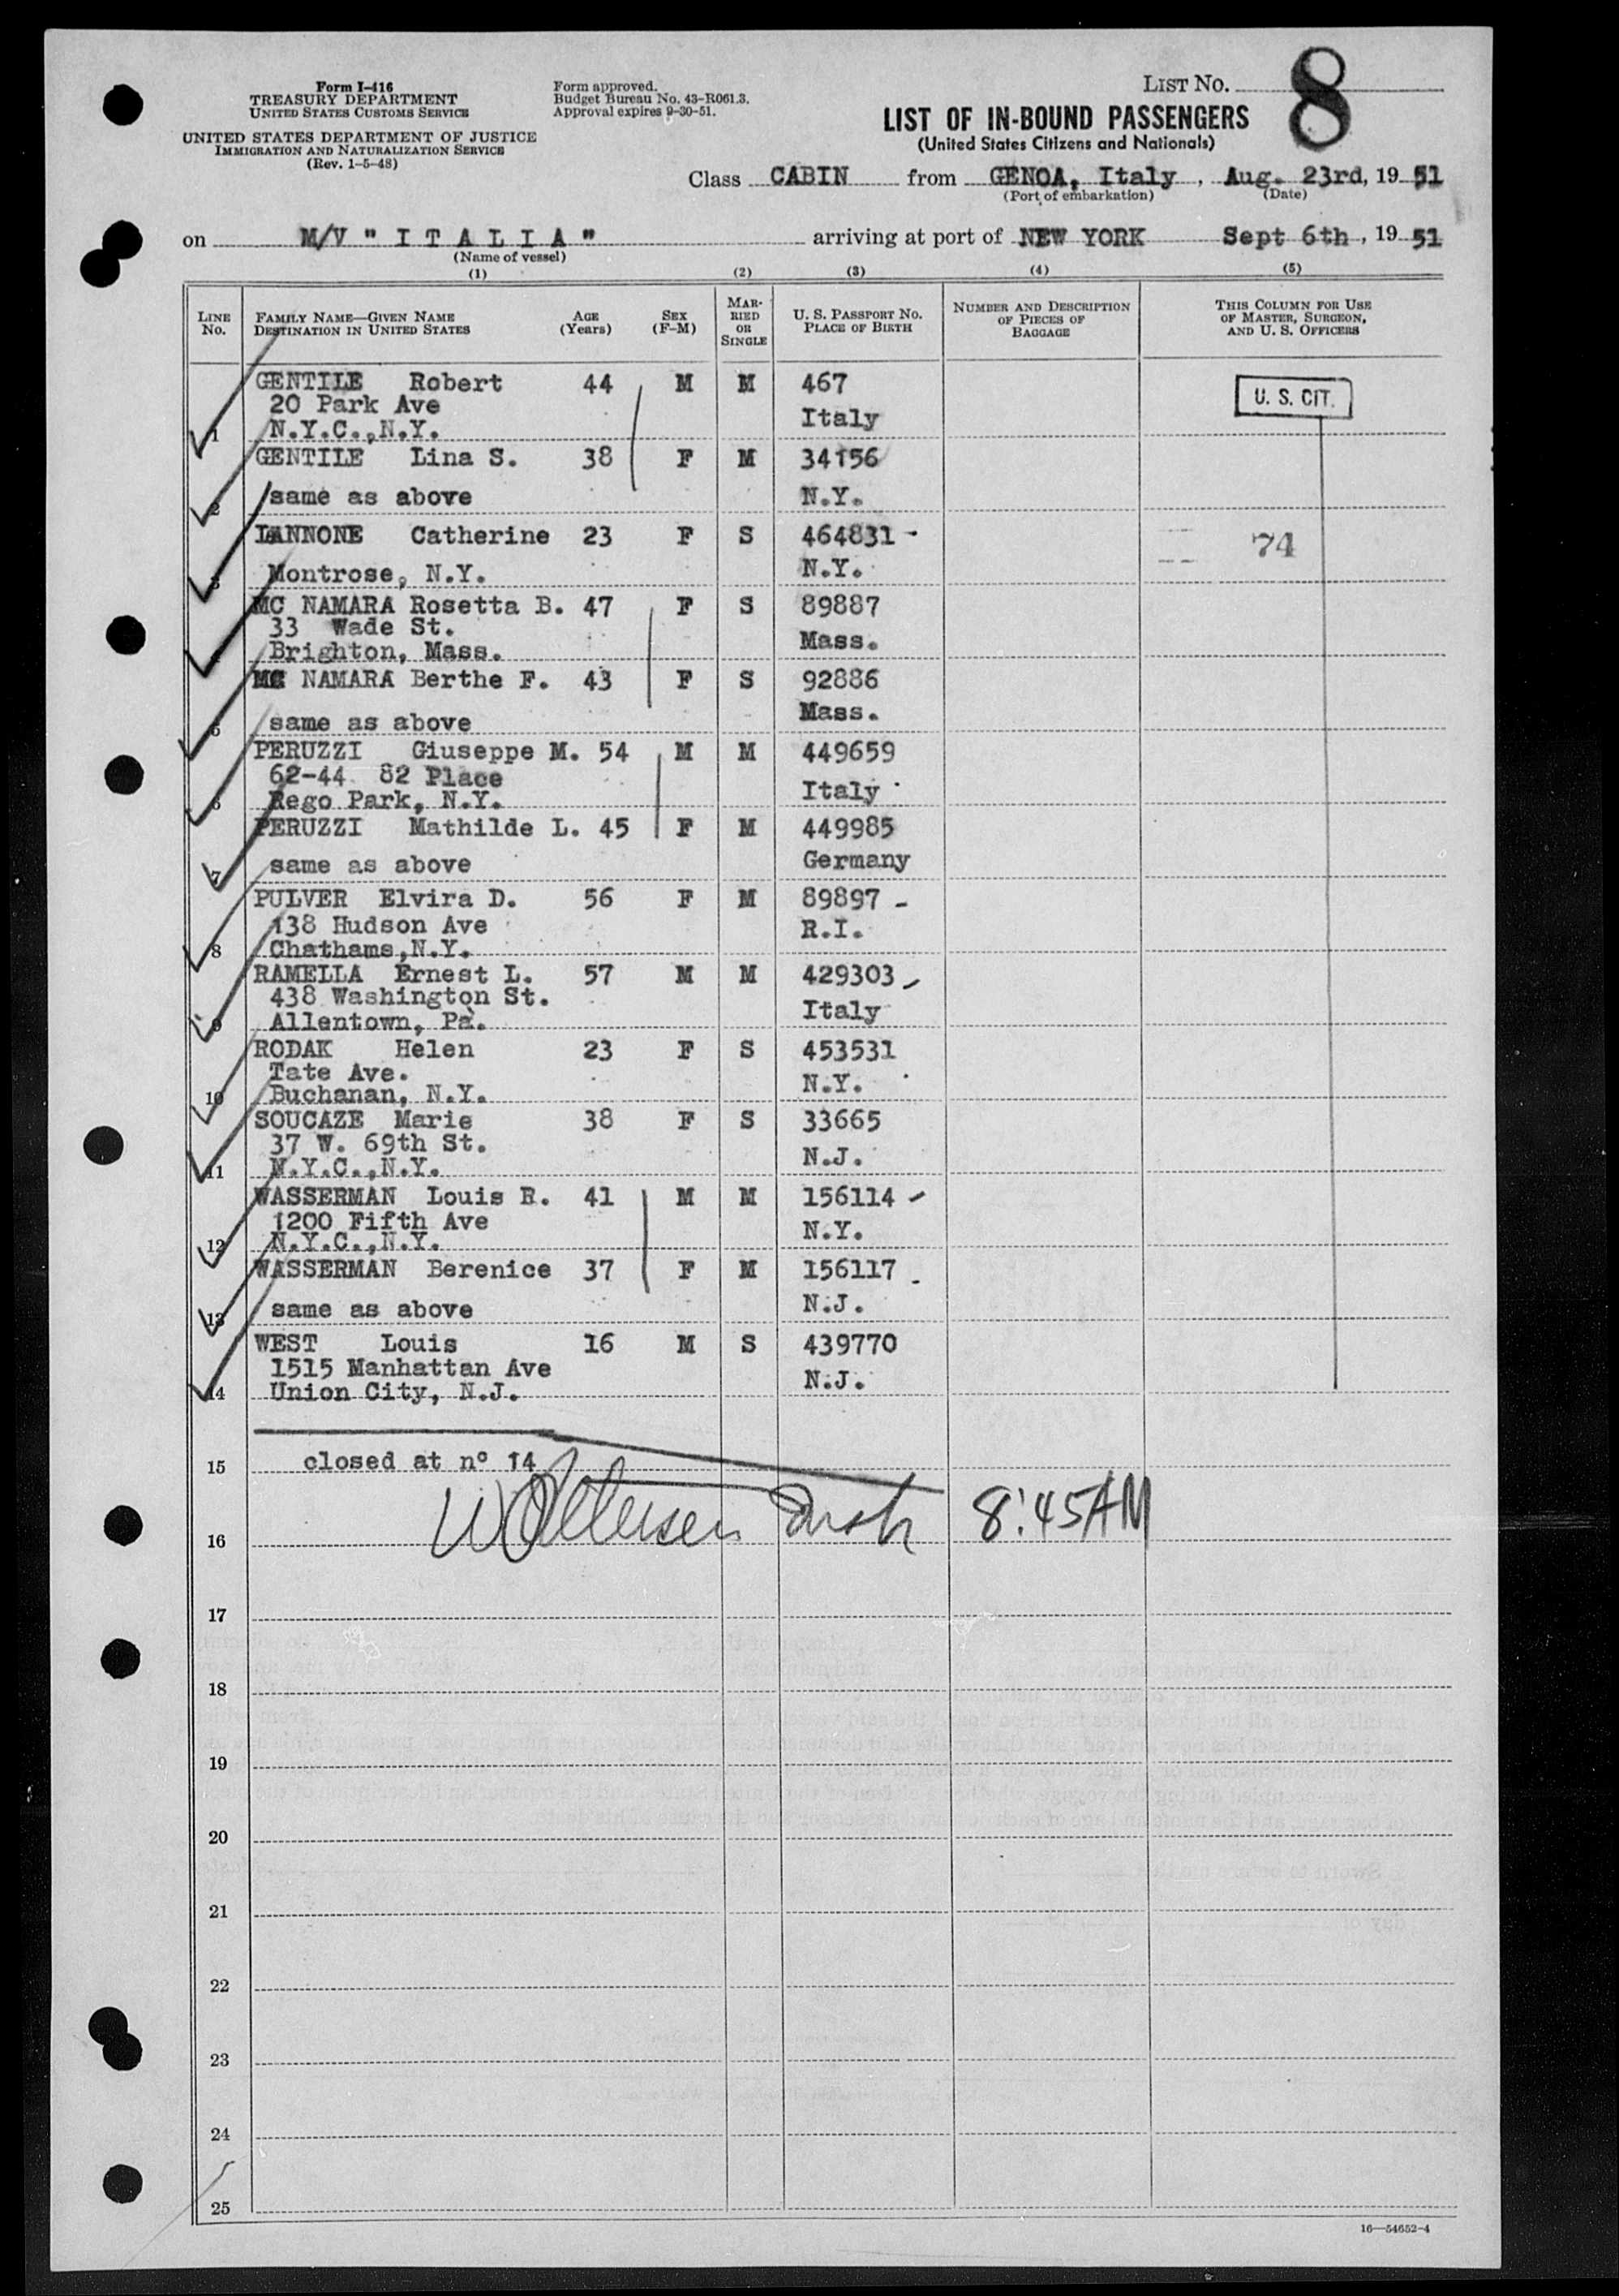 Form I-416
TREASURY DEPARTMENT
UNITED STATES CUSTOMS SERVICE
UNITED STATES DEPARTMENT OF JUSTICE
IMMIGRATION AND NATURALIZATION SERVICE
(Rev. 1-5-48)
Form approved.
Budget Bureau No. 43-R061.3.
Approval expires 9-30-51.
LIST NO. 8
LIST OF IN-BOUND PASSENGERS
(United States Citizens and Nationals)
Class CABIN from GENOA, Italy, Aug. 23rd, 19 51
(Port of embarkation) (Date)
on M/V " I T A L I A " arriving at port of NEW YORK Sept 6th, 19 51
(Name of vessel)
(1) (2) (3) (4) (5)
LINE NO. FAMILY NAME—GIVEN NAME DESTINATION IN UNITED STATES AGE (Years) SEX (F-M) MARRIED OR SINGLE U. S. PASSPORT NO. PLACE OF BIRTH NUMBER AND DESCRIPTION OF PIECES OF BAGGAGE THIS COLUMN FOR USE OF MASTER, SURGEON, AND U. S. OFFICERS
GENTILE Robert 44 M M 467 U. S. CIT.
20 Park Ave Italy
1 N.Y.C.,N.Y.
GENTILE Lina S. 38 F M 34156
2 same as above N.Y.
IANNONE Catherine 23 F S 464831 - 74
3 Montrose, N.Y. N.Y.
MC NAMARA Rosetta B. 47 F S 89887
33 Wade St. Mass.
4 Brighton, Mass.
MC NAMARA Berthe F. 43 F S 92886
5 same as above Mass.
PERUZZI Giuseppe M. 54 M M 449659
62-44 82 Place Italy
6 Rego Park, N.Y.
PERUZZI Mathilde L. 45 F M 449985
7 same as above Germany
PULVER Elvira D. 56 F M 89897 -
138 Hudson Ave R.I.
8 Chathams,N.Y.
RAMELLA Ernest L. 57 M M 429303
438 Washington St. Italy
9 Allentown, Pa.
RODAK Helen 23 F S 453531
Tate Ave. N.Y.
10 Buchanan, N.Y.
SOUCAZE Marie 38 F S 33665
37 W. 69th St. N.J.
11 N.Y.C.,N.Y.
WASSERMAN Louis R. 41 M M 156114
1200 Fifth Ave N.Y.
12 N.Y.C.,N.Y.
WASSERMAN Berenice 37 F M 156117
13 same as above N.J.
WEST Louis 16 M S 439770
1515 Manhattan Ave N.J.
14 Union City, N.J.
15 closed at nº 14
16 8:45AM
17
18
19
20
21
22
23
24
25
16—54652-4